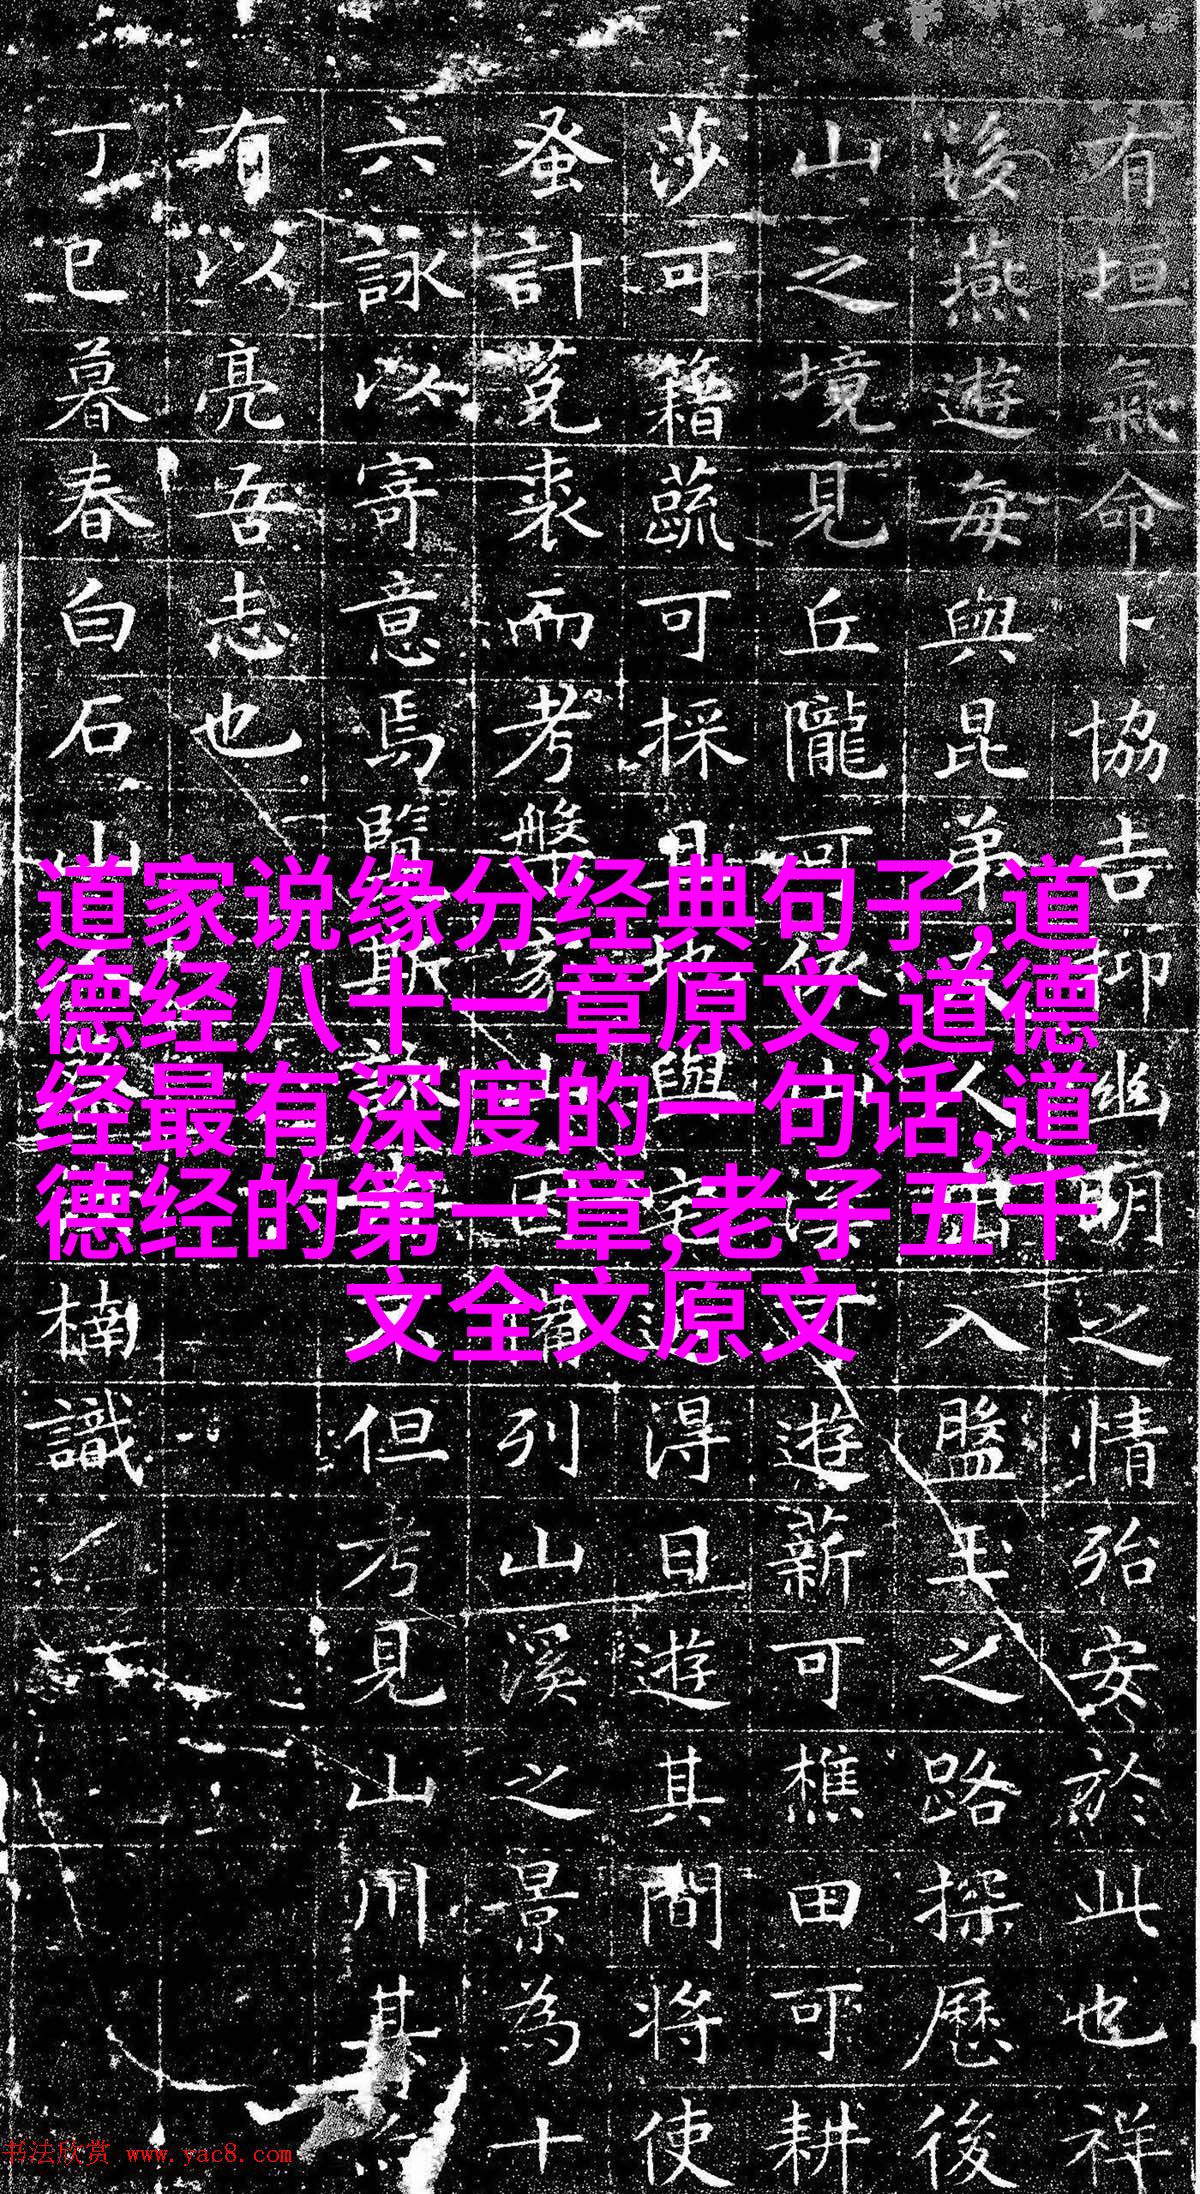 有垣氣命卜協吉抑幽明之情殆安於此也祥
燕遊每與昆弟人入盤玉之路探歷後
山之境見丘隴可依山深可遊薪可樵田可耕
莎可籍蔬可採且地與得日遊其間將使
蚤計菟裘而考槃山因列山溪之景為十
六詠以寄意焉覽斯詠不但考見山川其
有以亮吾志也
丁巳暮春白石山楠識
道家说缘分经典句子,道
德经八十一章原文,道德
经最有深度的一句话,道
德经的第一章,老子五千
文全文原文
书法欣赏 www.yac8.com